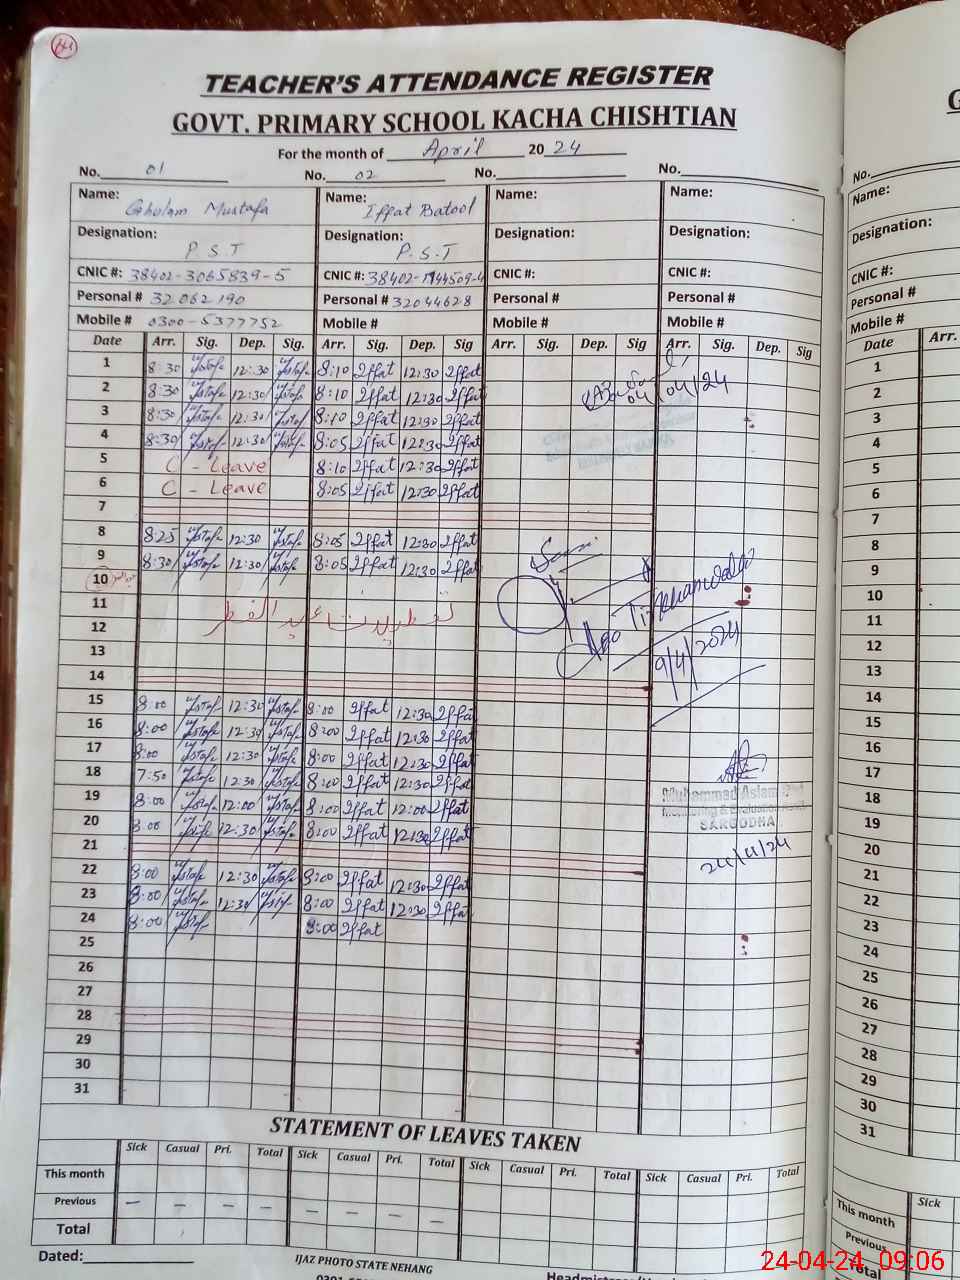 TEACHER'S ATTENDANCE REGISTER
GOVT. PRIMARY SCHOOL KACHA CHISHTIAN
For the month of April 2024
No. 01 No. 02 No. No.
Name: Gholam Mustafa Name: Iffat Batool Name: Name:
Designation: P.S.T Designation: P.S.T Designation: Designation:
CNIC #: 38402-3065839-5 CNIC #: 38402- CNIC #: CNIC #:
Personal # 32062190 Personal # 32044628 Personal # Personal #
Mobile # 0300-5377752 Mobile # Mobile # Mobile #
Date Arr. Sig. Dep. Sig. Arr. Sig. Dep. Sig Arr. Sig. Dep. Sig Arr. Sig. Dep. Sig
1 8:30 12:30 8:10 Iffat 12:30 Iffat
2 8:30 12:30 8:10 Iffat 12:30 Iffat 04/04/24
3 8:30 12:30 8:10 Iffat 12:30 Iffat
4 8:30 12:30 8:05 Iffat 12:30 Iffat
5 C - Leave 8:10 Iffat 12:30 Iffat
6 C - Leave 8:05 Iffat 12:30 Iffat
7
8 8:25 12:30 8:05 Iffat 12:30 Iffat
9 8:30 12:30 8:05 Iffat 12:30 Iffat
10
11 تعطیلات عید الفطر
12 9/4/2024
13
14
15 8:00 12:30 8:00 Iffat 12:30 Iffat
16 8:00 12:30 8:00 Iffat 12:30 Iffat
17 8:00 12:30 8:00 Iffat 12:30 Iffat
18 7:50 12:30 8:00 Iffat 12:30 Iffat
19 8:00 12:00 8:00 Iffat 12:00 Iffat Muhammad Aslam
20 8:00 12:30 8:00 Iffat 12:30 Iffat SARGODHA
21 24/4/24
22 8:00 12:30 8:00 Iffat 12:30 Iffat
23 8:00 12:30 8:00 Iffat 12:30 Iffat
24 8:00 8:00 Iffat
25
26
27
28
29
30
31
STATEMENT OF LEAVES TAKEN
Sick Casual Pri. Total Sick Casual Pri. Total Sick Casual Pri. Total Sick Casual Pri. Total
This month
Previous — — — — — — — —
Total
Dated:
IJAZ PHOTO STATE NEHANG
G
No.
Name:
Designation:
CNIC #:
Personal #
Mobile #
Date Arr.
1
2
3
4
5
6
7
8
9
10
11
12
13
14
15
16
17
18
19
20
21
22
23
24
25
26
27
28
29
30
31
Sick
This month
Previous
Total
24-04-24 09:06